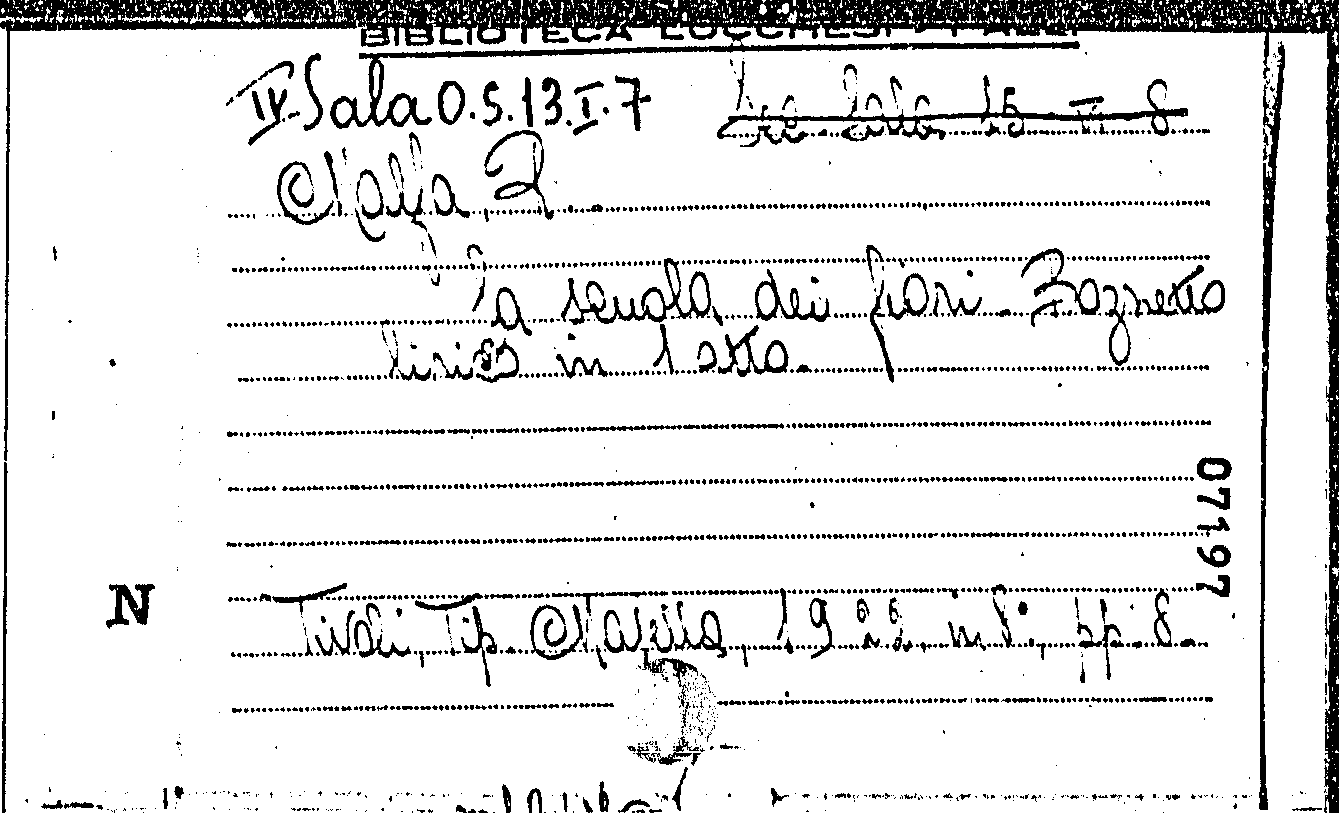 BIBLIOTECA LUCCHESI - PALLI
IV. Sala O.5.13.I.7 Sala 15 VI 8
Nalfa R.
La scuola dei fiori. Bozzetto
lirico in 1 atto.
07197
N
Tivoli, Tip. Majella, 1922 in 8°, pp. 8.